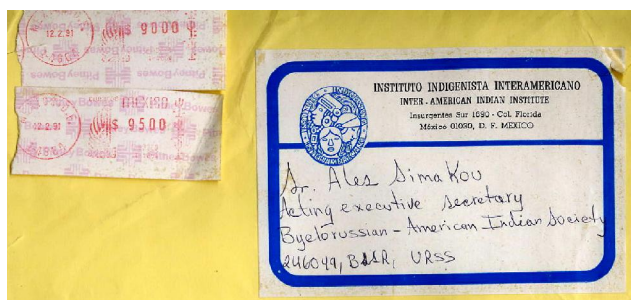 12.2.91
$ 9000
Pitney Bowes
MEXICO
12.2.91
$ 9500
INSTITUTO INDIGENISTA INTERAMERICANO
INTER-AMERICAN INDIAN INSTITUTE
Insurgentes Sur 1690 - Col. Florida
México 01030, D. F. MEXICO
Sr. Ales Simakou
Acting executive secretary
Byelorussian-American Indian Society
246049, BSSR, URSS